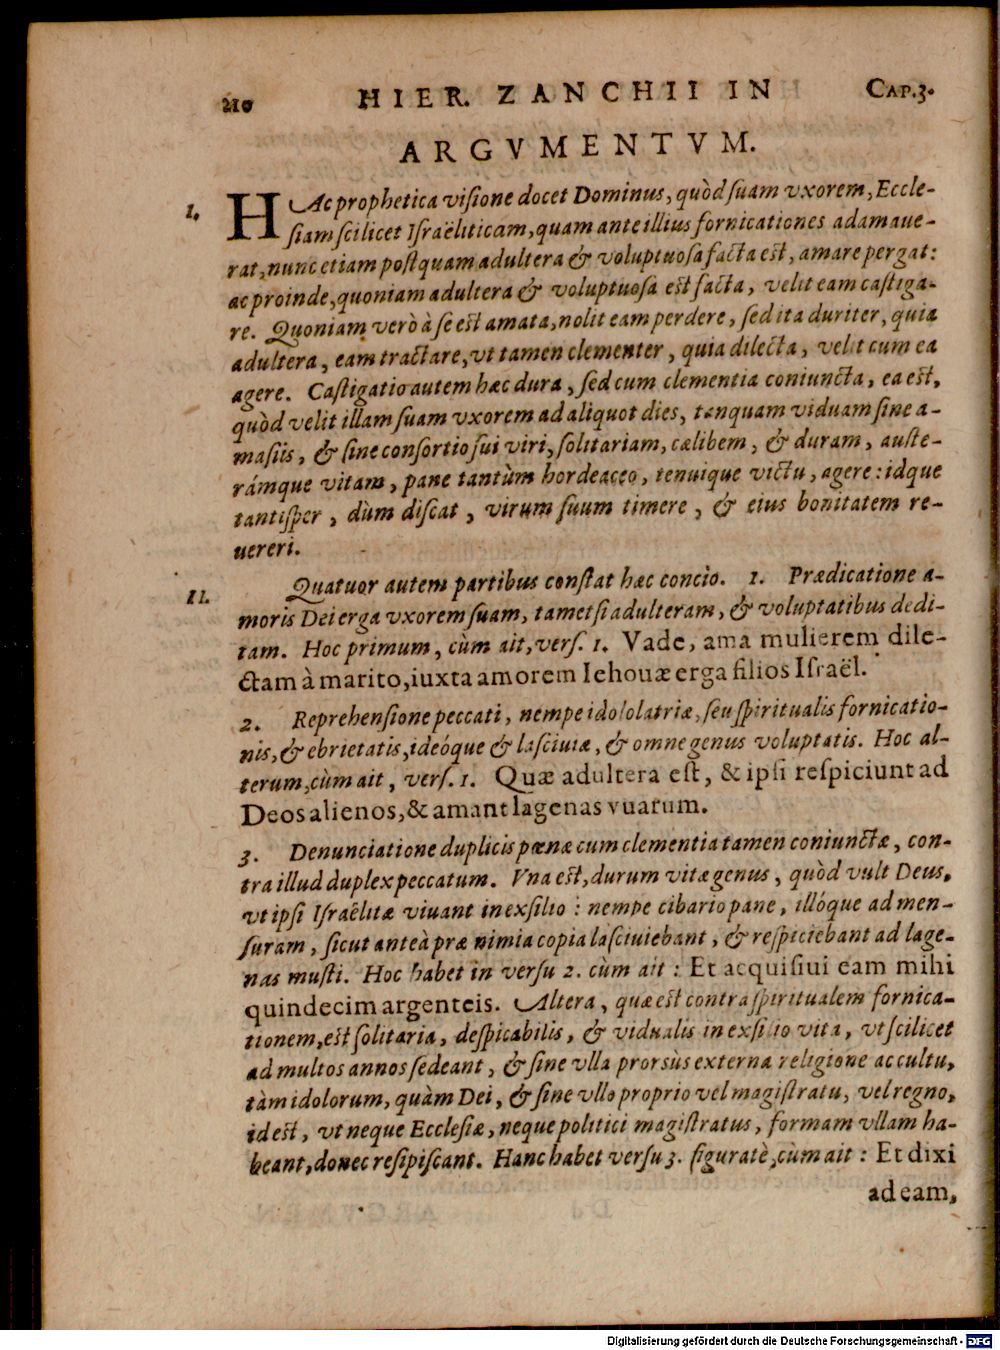 210 HIER. ZANCHII IN CAP.3.
ARGVMENTVM.
I. HAc prophetica viſione docet Dominus, quòd ſuam vxorem, Eccle-
ſiam ſcilicet Iſraëliticam, quam ante illius fornicationes adamaue-
rat, nunc etiam poſtquam adultera & voluptuoſa facta est, amare pergat:
ac proinde, quoniam adultera & voluptuoſa est facta, velit eam caſtiga-
re. Quoniam verò à ſe est amata, nolit eam perdere, ſed ita duriter, quia
adultera, eam tractare, vt tamen clementer, quia dilecta, velit cum ea
agere. Caſtigatio autem hæc dura, ſed cum clementia coniuncta, ea est,
quòd velit illam ſuam vxorem ad aliquot dies, tanquam viduam ſine a-
maſiis, & ſine conſortio ſui viri, ſolitariam, cælibem, & duram, auſte-
rámque vitam, pane tantùm hordeaceo, tenuique victu, agere: idque
tantiſper, dùm diſcat, virum ſuum timere, & eius bonitatem re-
uereri.
II. Quatuor autem partibus conſtat hæc concio. 1. Prædicatione a-
moris Dei erga vxorem ſuam, tametſi adulteram, & voluptatibus dedi-
tam. Hoc primum, cùm ait, verſ. 1. Vade, ama mulierem dile-
ctam à marito, iuxta amorem Iehouæ erga filios Iſraël.
2. Reprehenſione peccati, nempe idololatriæ, ſeu ſpiritualis fornicatio-
nis, & ebrietatis, ideóque & laſciuiæ, & omne genus voluptatis. Hoc al-
terum, cùm ait, verſ. 1. Quæ adultera eſt, & ipſi reſpiciunt ad
Deos alienos, & amant lagenas vuarum.
3. Denunciatione duplicis pœnæ cum clementia tamen coniunctæ, con-
tra illud duplex peccatum. Vna est, durum vitæ genus, quòd vult Deus,
vt ipſi Iſraëlitæ viuant in exſilio: nempe cibario pane, illóque ad men-
ſuram, ſicut anteà præ nimia copia laſciuiebant, & reſpiciebant ad lage-
nas muſti. Hoc habet in verſu 2. cùm ait: Et acquiſiui eam mihi
quindecim argenteis. Altera, quæ est contra ſpiritualem fornica-
tionem, est ſolitaria, deſpicabilis, & vidualis in exſilio vita, vt ſcilicet
ad multos annos ſedeant, & ſine vlla prorsùs externa religione ac cultu,
tàm idolorum, quàm Dei, & ſine vllo proprio vel magiſtratu, vel regno,
id est, vt neque Eccleſiæ, neque politici magiſtratus, formam vllam ha-
beant, donec reſipiſcant. Hanc habet verſu 3. figuratè, cùm ait: Et dixi
ad eam,
Digitalisierung gefördert durch die Deutsche Forschungsgemeinschaft - DFG